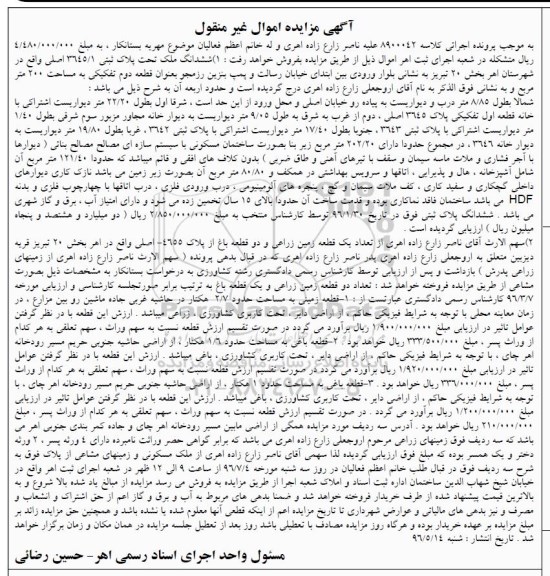 آگهی مزایده اموال غیر منقول
به موجب پرونده اجرائی کلاسه ۸۹۰۰۰۴۲ علیه ناصر زارع زاده اهری و له خانم اعظم فعالیان موضوع مهریه بستانکار ، به مبلغ ۴/۴۸۰/۰۰۰/۰۰۰
ریال متشکله در شعبه اجرای ثبت اهر اموال ذیل از طریق مزایده بفروش خواهد رفت : ۱)ششدانگ ملک تحت پلاک ثبتی ۳۶۴۵/۱ اصلی واقع در
شهرستان اهر بخش ۲۰ تبریز به نشانی بلوار ورودی بین ابتدای خیابان رسالت و پمپ بنزین رزمجو بعنوان قطعه دوم تفکیکی به مساحت ۲۰۰ متر
مربع و به نشانی فوق الذکر به نام آقای اروجعلی زارع زاده اهری درج گردیده است و حدود اربعه آن به شرح ذیل می باشد :
شمالا بطول ۸/۸۵ متر درب و دیواریست به پیاده رو خیابان اصلی و محل ورود از این حد است ، شرقا اول بطول ۲۲/۲۰ متر دیواریست اشتراکی با
قطعه اول تفکیکی پلاک ۳۶۴۵ اصلی ، دوم از غرب به شرق به طول ۹/۰۵ متر دیواریست به دیوار خانه مجاور مزبور سوم شرقی بطول ۱/۴۰
متر دیواریست اشتراکی با پلاک ثبتی ۳۶۴۳ ، جنوبا بطول ۱۷/۴۰ متر دیواریست اشتراکی با پلاک ثبتی ۳۶۴۲ ، غربا بطول ۱۹/۸۰ متر دیواریست به
دیوار خانه ۳۶۴۶ ، در مجموع حدودا دارای ۲۰۲/۲۰ متر مربع زیر بنا بصورت ساختمان مسکونی با سیستم سازه ای مصالح مصالح بنائی ( دیوارها
با آجر فشاری و ملات ماسه سیمان و سقف با تیرهای آهنی و طاق ضربی ) بدون کلاف های افقی و قائم میباشد که حدودا ۱۲۱/۴۰ متر مربع آن
شامل آشپزخانه ، هال و پذیرایی ، اتاقها و سرویس بهداشتی در همکف و ۸۰/۸۰ متر مربع آن بصورت زیر زمین می باشد نازک کاری دیوارهای
داخلی گچکاری و سفید کاری ، کف ملات سیمان و گچ پنجره های آلومینیومی ، درب ورودی فلزی ، درب اتاقها با چهارچوب فلزی و بدنه
HDF می باشد ساختمان فاقد نماکاری بوده و قدمت ساخت آن حدودا بالای ۱۵ سال تخمین زده می شود و دارای امتیاز آب ، برق و گاز شهری
می باشد . ششدانگ پلاک ثبتی فوق در تاریخ ۹۶/۱/۳۰ توسط کارشناس منتخب به مبلغ ۲/۸۵۰/۰۰۰/۰۰۰ ریال ( دو میلیارد و هشتصد و پنجاه
میلیون ریال ) ارزیابی گردیده است .
۲)سهم الارث آقای ناصر زارع زاده اهری از تعداد یک قطعه زمین زراعی و دو قطعه باغ از پلاک ۴۶۵۵- اصلی واقع در اهر بخش ۲۰ تبریز قریه
دیزبین متعلق به اروجعلی زارع زاده اهری پدر ناصر زارع زاده اهری که در قبال بدهی پرونده ( سهم الارث ناصر زارع زاده اهری از زمینهای
زراعی پدرش ) بازداشت و پس از ارزیابی توسط کارشناس رسمی دادگستری رشته کشاورزی به درخواست بستانکار به مشخصات ذیل بصورت
مشاعی از طریق مزایده فروخته خواهد شد : تعداد دو قطعه زمین زراعی و یک قطعه باغ به ترتیب برابر صورتجلسه کارشناسی و ارزیابی مورخه
۹۶/۳/۷ کارشناس رسمی دادگستری عبارتست از : ۱-قطعه زمینی به مساحت حدود ۲/۷ هکتار در حاشیه غربی جاده ماشین رو بین مزارع ، در
زمان معاینه محلی با توجه به شرایط فیزیکی حاکم ، از اراضی دایر ، تحت کاربری کشاورزی ، زراعی میباشد . ارزش این قطعه با در نظر گرفتن
عوامل تاثیر در ارزیابی مبلغ ۱/۹۰۰/۰۰۰/۰۰۰ ریال برآورد می گردد در صورت تقسیم ارزش قطعه نسبت به سهم وراث ، سهم تعلقی به هر کدام
از وراث پسر ، مبلغ ۳۳۳/۵۰۰/۰۰۰ ریال خواهد بود . ۲-قطعه باغی به مساحت حدود ۱/۶ هکتار ، از اراضی حاشیه جنوبی حریم مسیر رودخانه
اهر چای ، با توجه به شرایط فیزیکی حاکم ، از اراضی دایر ، تحت کاربری کشاورزی ، باغی میباشد . ارزش این قطعه با در نظر گرفتن عوامل
تاثیر در ارزیابی مبلغ ۱/۹۲۰/۰۰۰/۰۰۰ ریال برآورد می گردد در صورت تقسیم ارزش قطعه نسبت به سهم وراث ، سهم تعلقی به هر کدام از وراث
پسر ، مبلغ ۳۳۶/۰۰۰/۰۰۰ ریال خواهد بود . ۳-قطعه باغی به مساحت حدود ۱ هکتار ، از اراضی حاشیه جنوبی حریم مسیر رودخانه اهر چای ، با
توجه به شرایط فیزیکی حاکم ، از اراضی دایر ، تحت کاربری کشاورزی ، باغی میباشد . ارزش این قطعه با در نظر گرفتن عوامل تاثیر در ارزیابی
مبلغ ۱/۲۰۰/۰۰۰/۰۰۰ ریال برآورد می گردد . در صورت تقسیم ارزش قطعه نسبت به سهم وراث ، سهم تعلقی به هر کدام از وراث پسر ، مبلغ
۲۱۰/۰۰۰/۰۰۰ ریال خواهد بود . آدرس سه ردیف مورد مزایده همگی از اراضی مابین مسیر رودخانه اهر چای و جاده کمر بندی جنوبی اهر می
باشد که سه ردیف فوق زمینهای زراعی مرحوم اروجعلی زارع زاده اهری می باشد که برابر گواهی حصر وراثت نامبرده دارای ۴ ورثه پسر ، ۲ ورثه
دختر و یک همسر بوده که مبلغ فوق ارزیابی گردیده لذا سهمی آقای ناصر زارع زاده اهری از ملک مسکونی و زمینهای مشاعی از پلاک فوق به
شرح سه ردیف فوق در قبال طلب خانم اعظم فعالیان در روز سه شنبه مورخه ۹۶/۷/۴ از ساعت ۹ الی ۱۲ ظهر در شعبه اجرای ثبت اهر واقع در
خیابان شیخ شهاب الدین ساختمان اداره ثبت اسناد و املاک شعبه اجرا از طریق مزایده به فروش می رسد مزایده از مبالغ یاد شده بالا شروع و به
بالاترین قیمت پیشنهاد شده از طرف خریدار فروخته خواهد شد و ضمنا بدهی های مربوط به آب و برق و گاز اعم از حق اشتراک و انشعاب و
مصرف و نیز بدهی های مالیاتی و عوارض شهرداری تا تاریخ مزایده اعم از اینکه قطعی آنها معلوم شده یا نشده باشد و همچنین حق مزایده زائد بر
مبلغ مزایده بر عهده خریدار بوده و هرگاه روز مزایده مصادف با تعطیلی باشد روز بعد از تعطیل جلسه مزایده در همان مکان و زمان برگزار خواهد
شد . تاریخ انتشار : شنبه ۹۶/۵/۱۴
مسئول واحد اجرای اسناد رسمی اهر- حسین رضائی